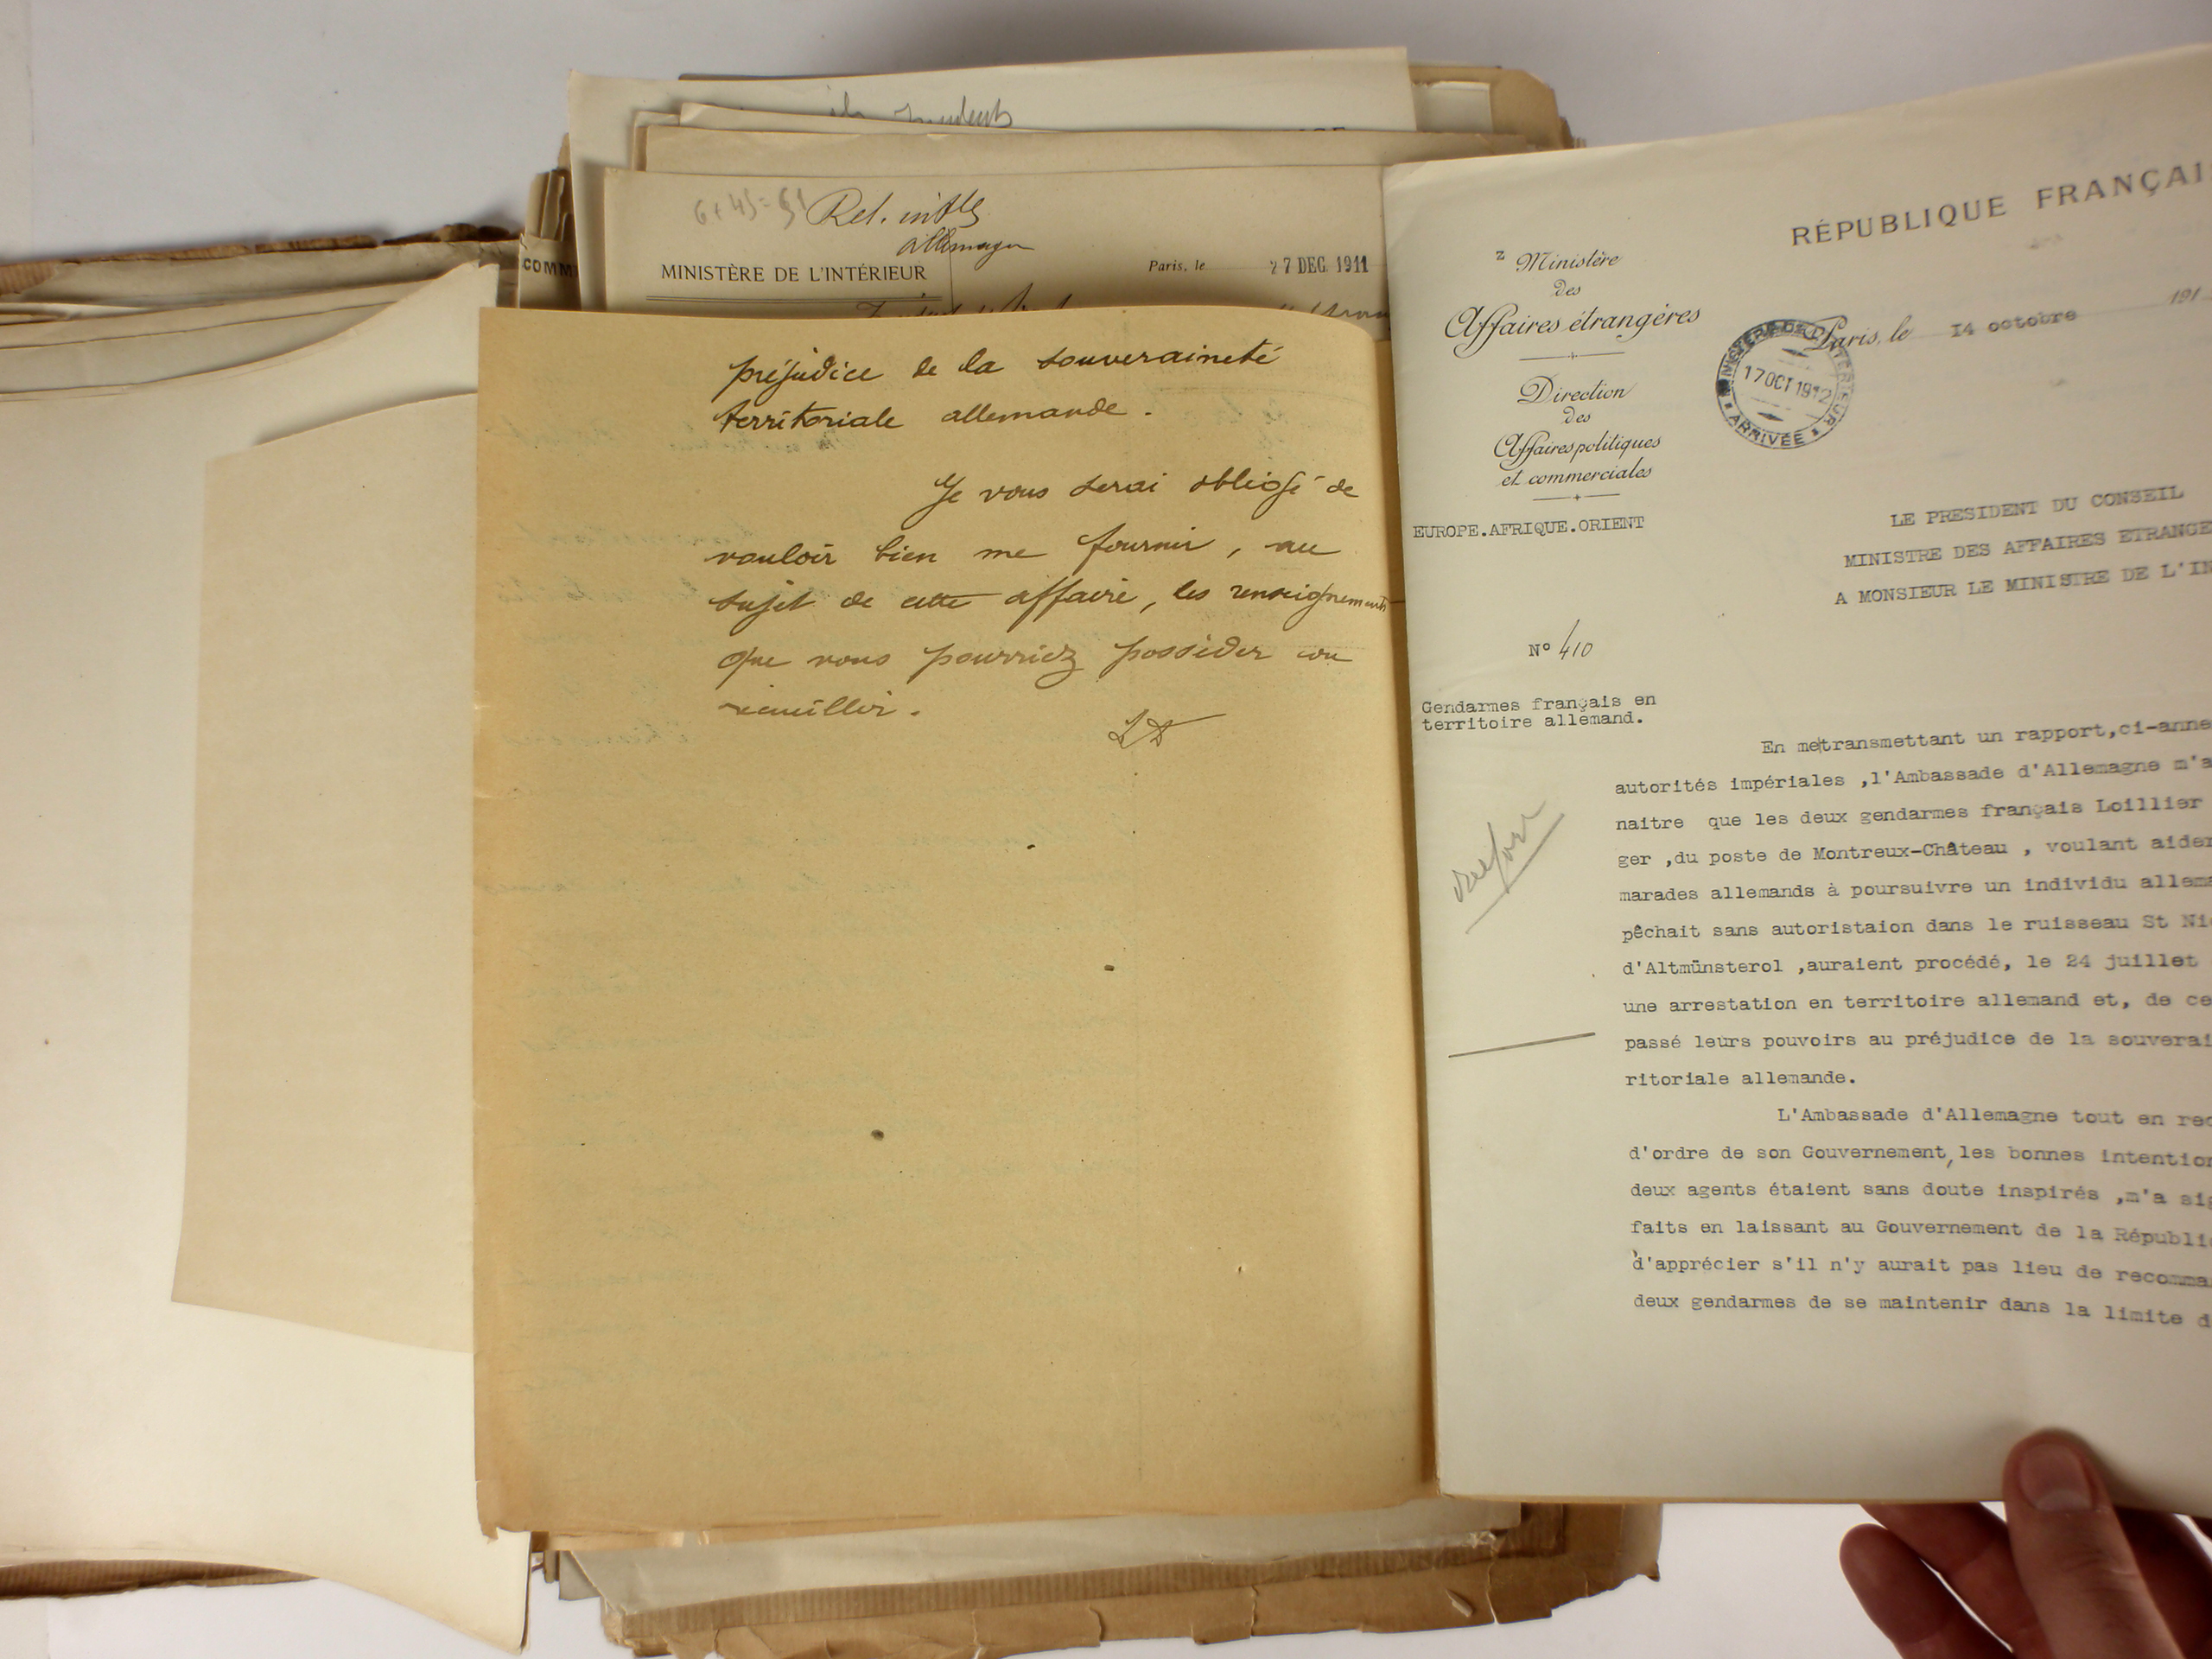 6+45=51
Rel. intles
allemagne
MINISTÈRE DE L'INTÉRIEUR
Paris, le 27 DEC. 1911
COMM
préjudice de la souveraineté
territoriale allemande.
Je vous serai obligé de
vouloir bien me fournir, au
sujet de cette affaire, les renseignements
que vous pourriez posséder ou
recueillir.
RÉPUBLIQUE FRANÇAI
z Ministère
des
Affaires étrangères
Direction
des
Affaires politiques
et commerciales
EUROPE.AFRIQUE.ORIENT
Paris, le 14 octobre 191
MINISTERE DE L'INTERIEUR
17 OCT 1912
ARRIVÉE
LE PRESIDENT DU CONSEIL
MINISTRE DES AFFAIRES ETRANGE
A MONSIEUR LE MINISTRE DE L'IN
N° 410
Gendarmes français en
territoire allemand.
En me transmettant un rapport,ci-anne
autorités impériales ,l'Ambassade d'Allemagne m'a
naitre que les deux gendarmes français Loillier
ger ,du poste de Montreux-Château , voulant aider
marades allemands à poursuivre un individu allema
pêchait sans autoristaion dans le ruisseau St Ni
d'Altmünsterol ,auraient procédé, le 24 juillet
une arrestation en territoire allemand et, de ce
passé leurs pouvoirs au préjudice de la souverai
ritoriale allemande.
L'Ambassade d'Allemagne tout en rec
d'ordre de son Gouvernement, les bonnes intention
deux agents étaient sans doute inspirés ,m'a sig
faits en laissant au Gouvernement de la Républi
d'apprécier s'il n'y aurait pas lieu de recomma
deux gendarmes de se maintenir dans la limite d